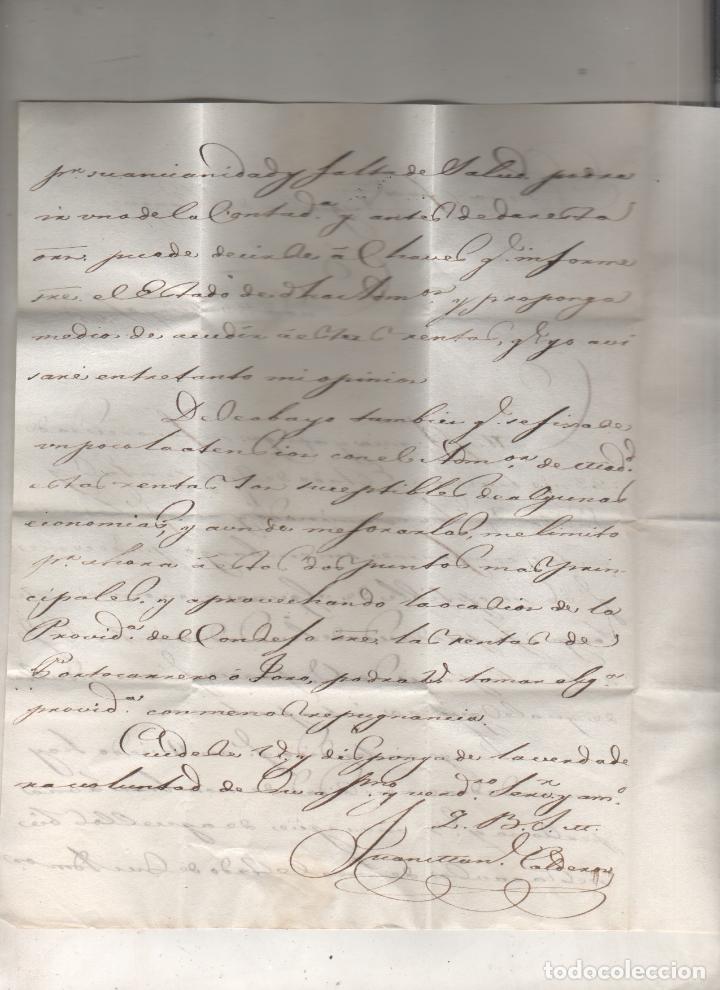 pr. su ancianidad y falta de Salud podra
ir uno de la Contada. y antes de dar esta
orn. puede decirsele á Chaves q. informe
sre. el Estado de dha Admon. y proponga
medio de acudir á estas rentas, q. yo avi
saré entretanto mi opinion
Deseo tambien q. se fixase
un poco la atencion con el Admor. de Madd.
estas rentas son suceptibles de algunas
economias, y aun de mejorarlas, me limito
pr. ahora á estos dos puntos mas prin-
cipales y aprovechando la ocasion de la
Provida. del Consejo sre. las rentas de
Portocarrero ó Toro, podra V. tomar algs.
providas. con menos repugnancia.
Cuidese V. y disponga de la verdade
ra voluntad de Su aff.mo y verdro. Servr. y amo.
Q. B. S. M.
Juan Man.l Calderon
todocoleccion.net